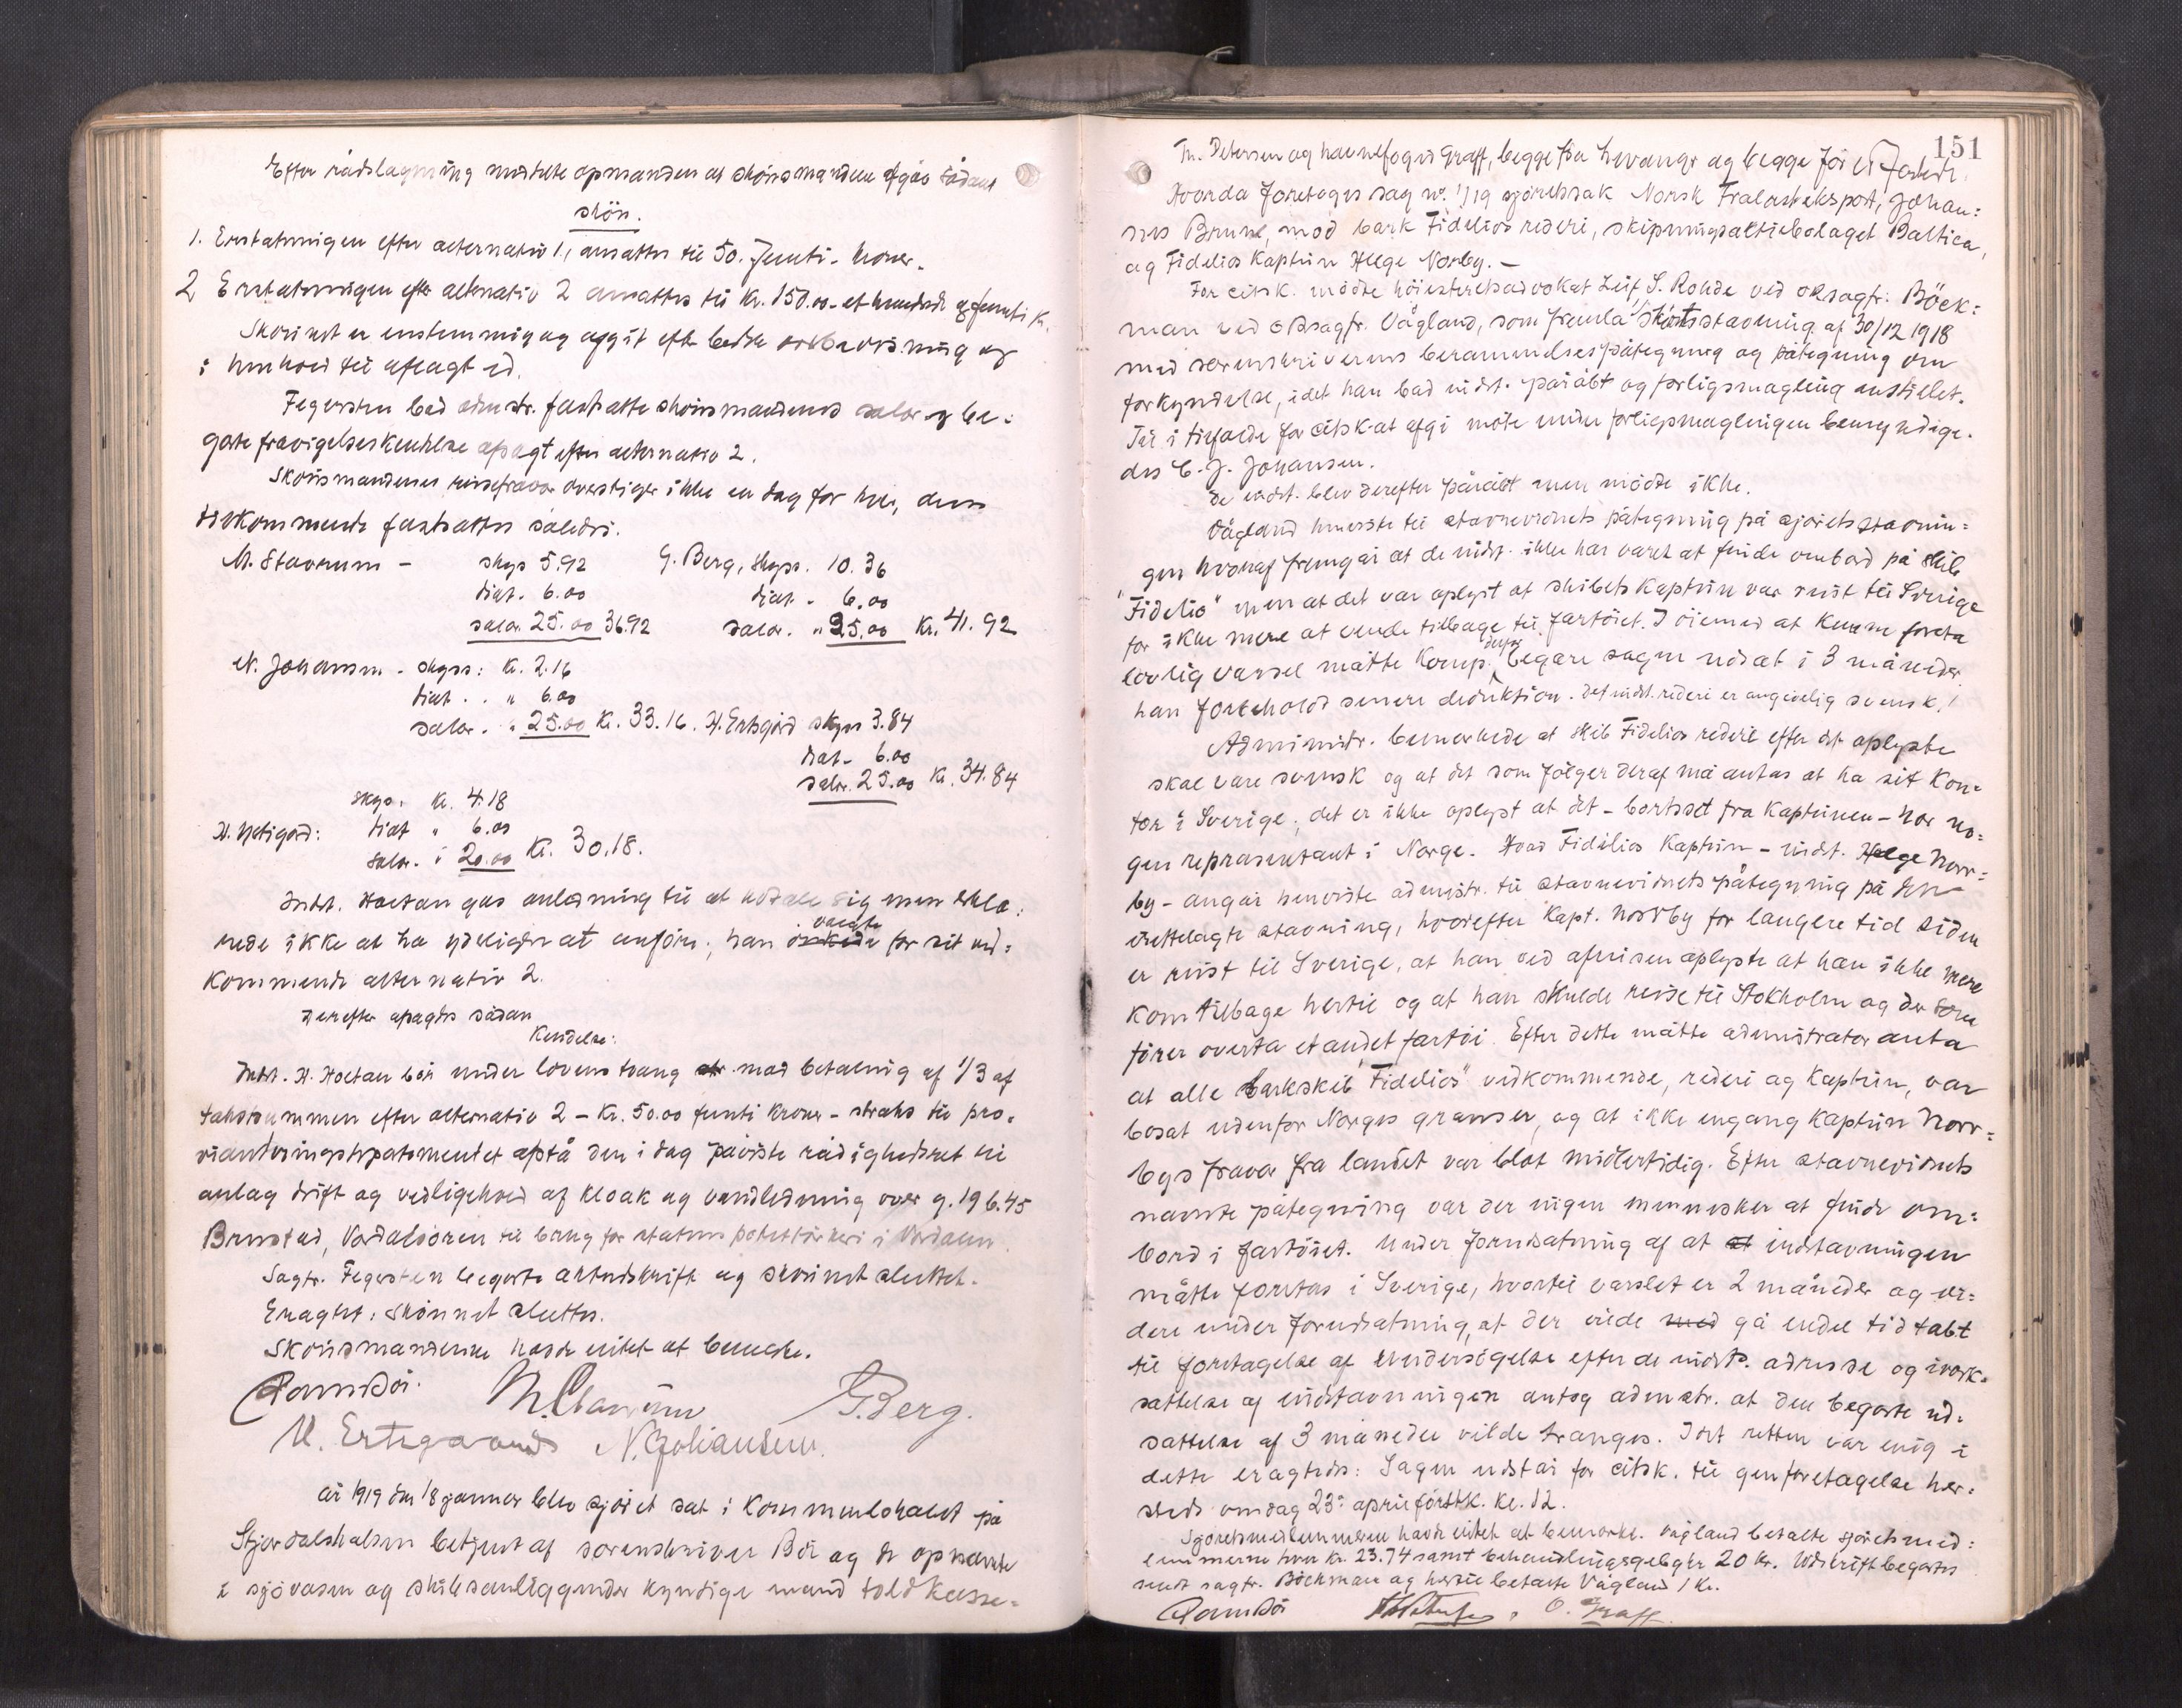 Efter rådslagning meddelte opmanden at skönsmændene afgav sådant
skön.
1. Erstatningen efter alternativ 1, ansattes til 50. femti - kroner.
2 Erstatningen efter alternativ 2 ansattes til kr. 150.00 - et hundrede og femti kr.
Skönnet er enstemmig og afgit efter bedste overbevisning og
i henhold til aflagt ed.
Fegersten bad admstr. fastsætte skönsmændenes salær og be=
gærte fravigelseskendelse afsagt efter alternativ 2.
Skönsmændenes reisefravær overstiger ikke en dag for hver, deres
tilkommende fastsattes således.
M. Stavrum - skys 5.92 G. Berg, skyss. 10.36
diæt. 6.00 diæt - 6.00
salær 25.00 36.92 salær. " 25.00 Kr. 41.92
N. Johansen - skyss: kr. 2.16
diæt . . " 6.00
salær. " 25.00 kr. 33.16. H. Ertsgård skyss 3.84
diæt - 6.00
salær. 25.00 kr. 34.84
skys. kr. 4.18
diæt " 6.00
salær. " 20.00 kr. 30.18.
Indst. Holtan gas anledning til at udtale sig men erklæ=
rede ikke at ha yderligere at anföre; han önskede valgte for sit ved=
kommende alternativ 2.
Derefter afsagdes sådan
Kendelse:
Indst. H. Holtan bör under lovens tvang at mod betaling af 1/3 af
takstsummen efter alternativ 2 - kr. 50.00 femti kroner - straks til pro=
vianteringsdepartementet afstå den i dag påviste rådighedsret til
anlæg drift og vedligehold af kloak og vandledning over g. 19 b. 45
Brustad, Verdalsören til brug for statens potettörkeri i Verdalen.
Sagfr. Fegersten begærte aktudskrift og skönnet sluttet.
Eragtet: skönnet sluttes.
Skönsmændene havde intet at bemerke.
Ramm Böi. M. Stavrum G. Berg.
H. Ertsgaard N. Johansen.
År 1919 den 18 januar blev sjöret sat i kommunelokalet på
Stjördalshalsen betjent af sorenskriver Böi og de opnævnte
i sjövæsen og skibsanliggender kyndige mænd toldkasse=
151
Th. Petersen og havnefoged Graff, begge fra Levanger og begge för
Hvorda foretoges sag no. 1/19 sjöretssak Norsk Trælasteksport, Johan=
nes Bruun, mod bark Fidelios rederi, skipningsaktiebolaget Baltica,
og Fidelios kaptein Helge Norby. -
For citsk. mödte höiesteretsadvokat Leif S. Rohde ved oksagfr. Böck=
man ved oksagfr. Vågland, som fremla skibsstævning af 30/12 1918
med sorenskriverens berammelsespåtegning og påtegning om
forkyndelse, idet han bad indst. påråbt og forligsmægling anstillet.
Til i tilfælde for citsk at afgi möte under forligsmæglingen bemyndige=
des C. J. Johansen.
De indst. blev derefter påråbt men mödte ikke.
Vågland henviste til stævnevidnets påtegning på sjöretsstævnin=
gen hvoraf fremgår at de indst. ikke har været at finde ombord på skib
"Fidelio" men at det var oplyst at skibets kaptein var reist til Sverige
for ikke mere at vende tilbage til fartöiet. I öiemed at kunne foreta
lovlig varsel måtte komp. derfor begære sagen udsat i 3 måneder
han forbeholdt senere deduktion. Det indst. rederi er angivelig svensk.
Administr. bemerkede at skib Fidelios rederi efter det oplyste
skal være svensk og at det som fölger deraf må antas at ha sit kon=
tor i Sverige; det er ikke oplyst at det - bortset fra kapteinen - har no=
gen repræsentant i Norge. Hvad Fidelios kaptein - indst. Helge Norr=
by - angår henviste admstr. til stævnevidnets påtegning på den
irettelagte stævning, hvorefter kapt. Norrby for længere tid siden
er reist til Sverige, at han ved afreisen oplyste at han ikke mere
kom tilbage hertil og at han skulde reise til Stokholm og der som
förer overta et andet fartöi. Efter dette måtte administrator anta
at alle barkskib "Fidelios" vedkommende, rederi og kaptein, var
bosat udenfor Norges grænser, og at ikke engang kaptein Norr=
bys fravær fra landet var blot midlertidig. Efter stævnevidnets
nævnte påtegning var der ingen mennesker at finde om=
bord i fartöiet. Under forudsætning af at at indstævningen
måtte foretas i Sverige, hvortil varslet er 2 måneder og vi=
dere under forudsætning, at der vilde med gå endel tid tabt
til foretagelse af undersögelse efter de indsts. adresse og iværk=
sættelse af indstævningen antog admstr. at den begærte ud=
sættelse af 3 måneder vilde trænges. Idet retten var enig i
dette eragtedes: Sagen udstår for citsk. til genforetagelse her=
steds onsdag 23: april förstk. kl. 12.
Sjöretsmedlemmerne havde intet at bemerke. Vågland betalte sjöretsmed=
lemmerne hver kr. 23.74 samt behandlingsgebyr 20 kr. Udskrift begærtes
sendt sagfr. Böckman og hertil betalte Vågland 1 kr.
Ramm Böi Th Petersen. O. Graff